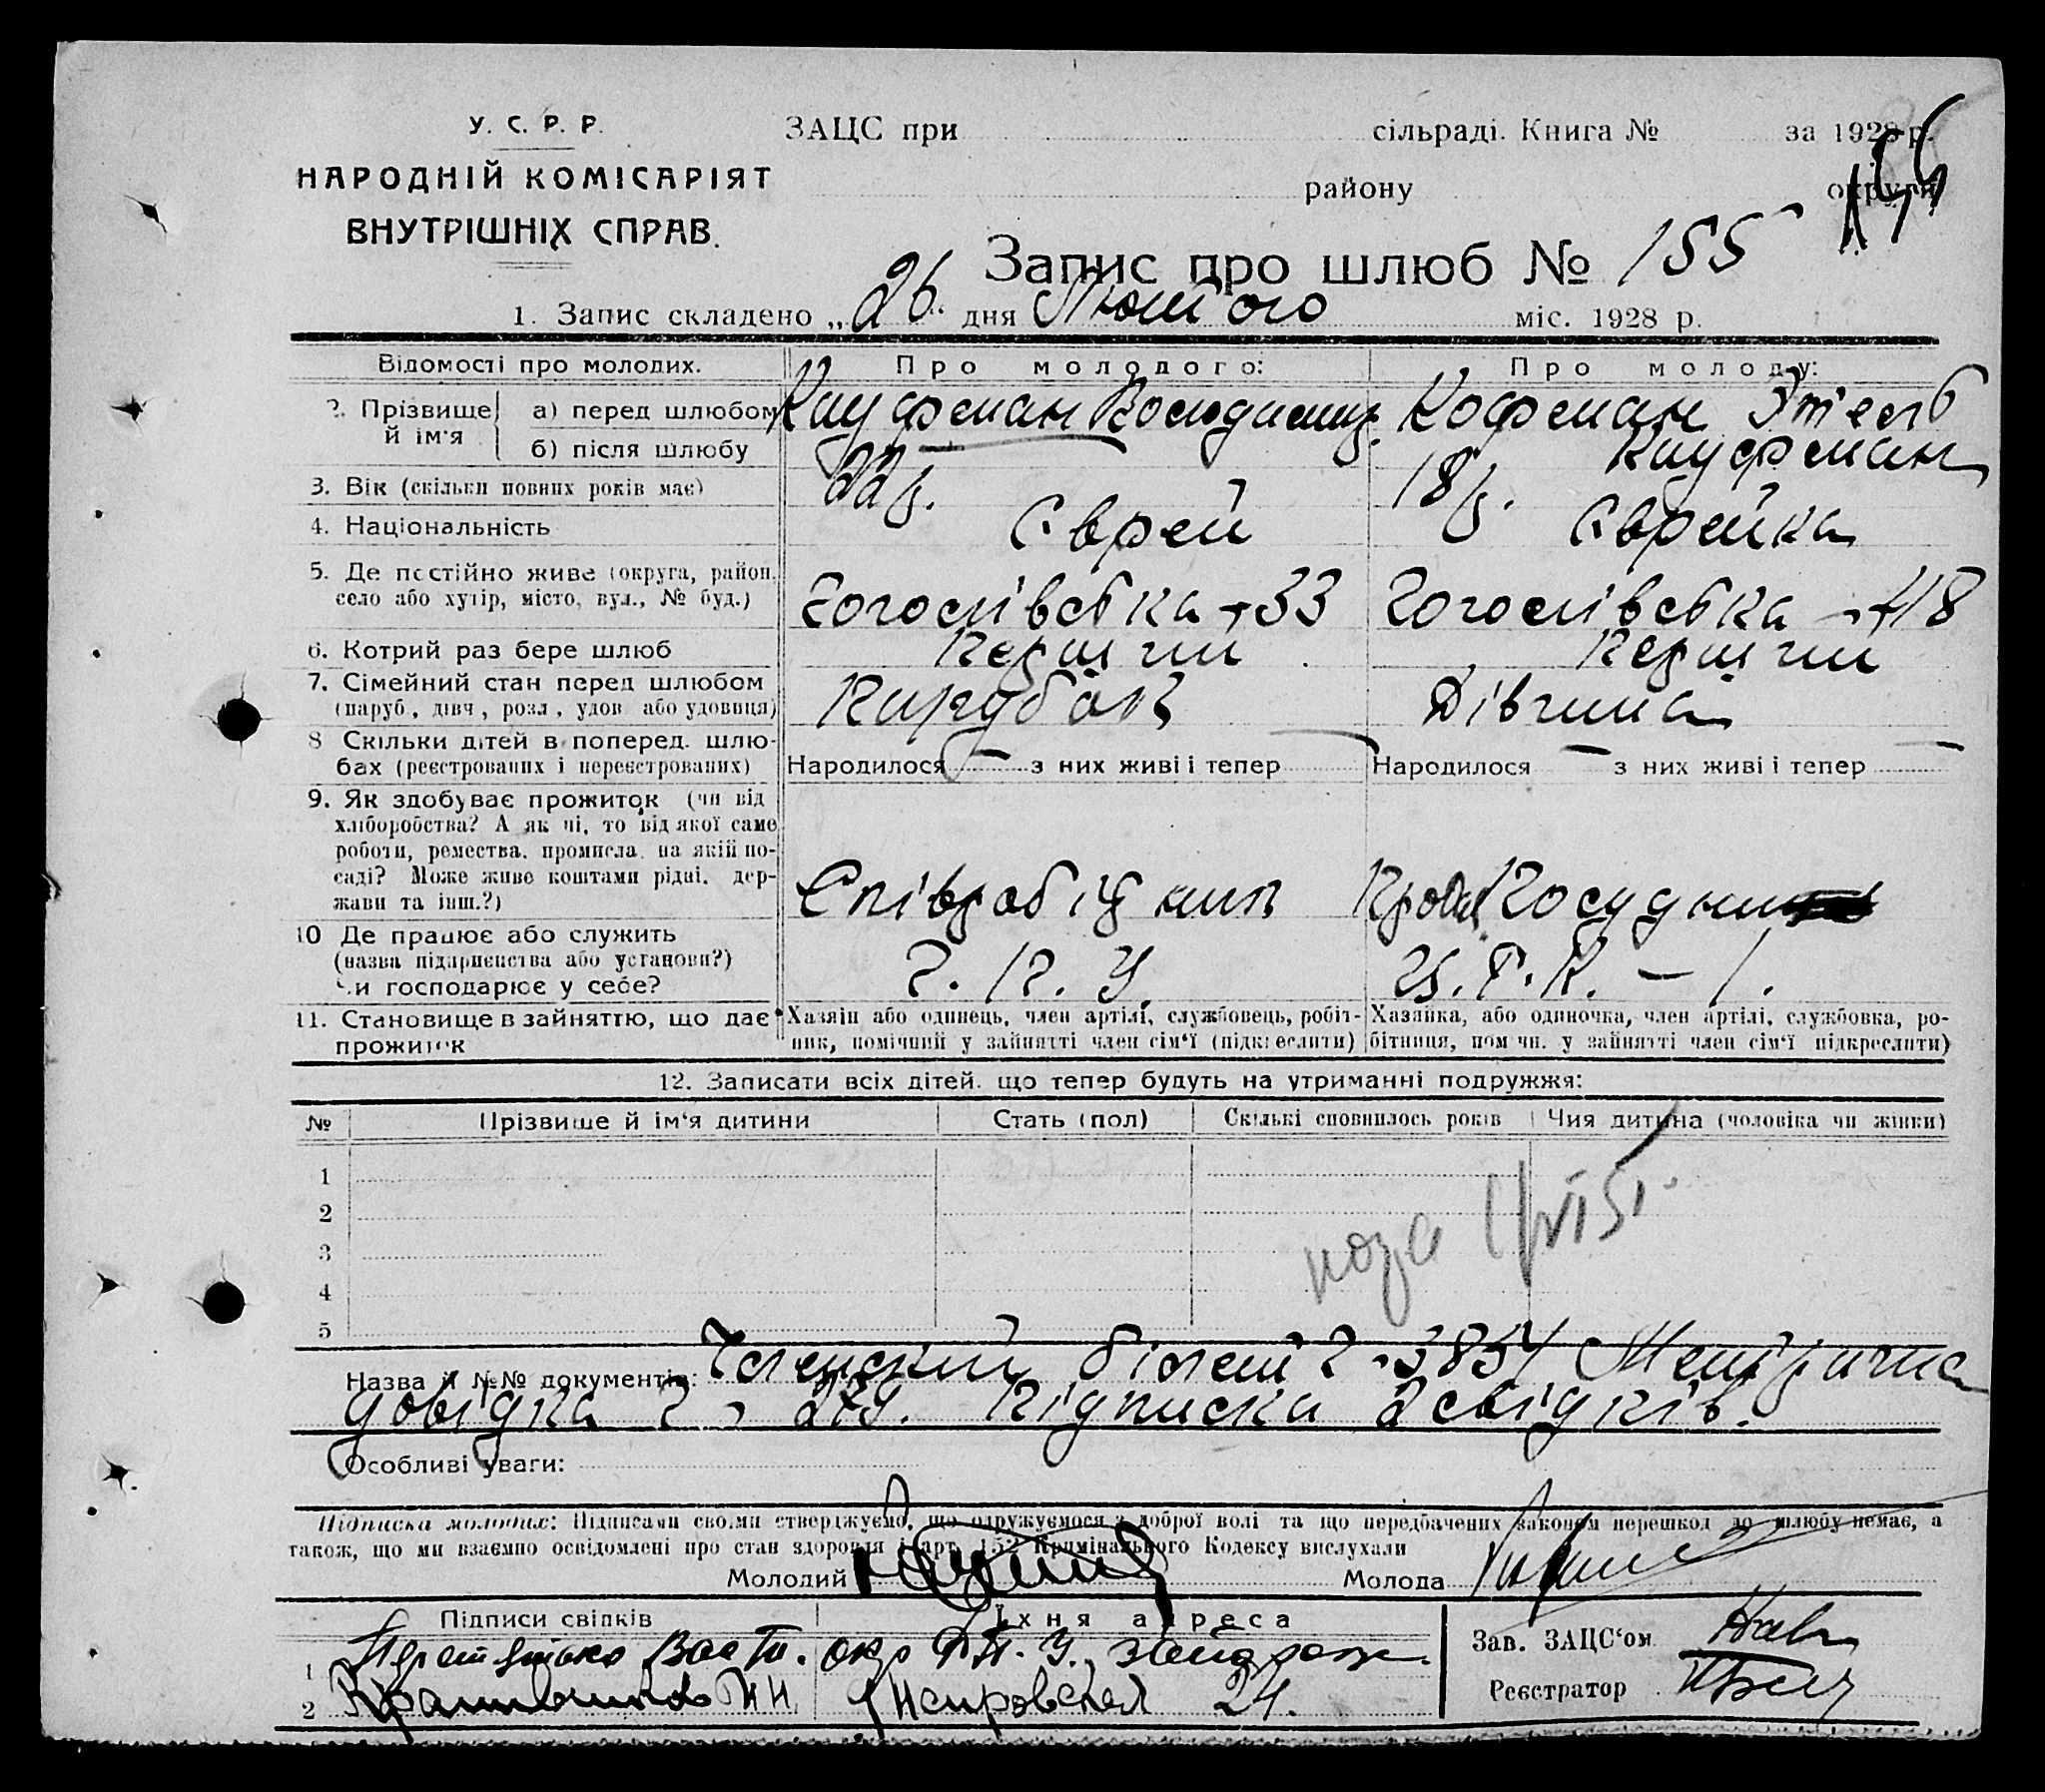 У. С. Р. Р.
НАРОДНІЙ КОМІСАРІЯТ
ВНУТРІШНІХ СПРАВ.
ЗАЦС при сільраді. Книга № за 1928 р.
району округи
155
Запис про шлюб № 155
1. Запис складено „26" дня Лютого міс. 1928 р.
Відомості про молодих. Про молодого: Про молоду:
2. Прізвище й ім'я
а) перед шлюбом Кауфман Володимир Кофман
б) після шлюбу Кауфман
3. Вік (скільки повних років має) 22 р. 18 р.
4. Національність Єврей Єврейка
5. Де постійно живе (округа, район, село або хутір, місто, вул., № буд.) Гоголівська 33 Гоголівська 18
6. Котрий раз бере шлюб Перший Перший
7. Сімейний стан перед шлюбом (паруб., дівч., розл., удов. або удовиця) Парубок Дівчина
8 Скільки дітей в поперед. шлюбах (реєстрованих і нереєстрованих) Народилося — з них живі і тепер — Народилося — з них живі і тепер —
9. Як здобуває прожиток (чи від хліборобства? А як ні, то від якої саме роботи, ремества, промисла, на якій посаді? Може живе коштами рідні, держави та інш.?) Співробітник
10 Де працює або служить (назва підприємства або установи?) Чи господарює у себе? Г. П. У. Ц. Р. К. – 1.
11. Становище в зайняттю, що дає прожиток
Хазяїн або одинець, член артілі, службовець, робітник, помічний у зайнятті член сім'ї (підкреслити)
Хазяйка, або одиночка, член артілі, службовка, робітниця, помічн. у зайнятті член сім'ї підкреслити)
12. Записати всіх дітей, що тепер будуть на утриманні подружжя:
№ Прізвище й ім'я дитини Стать (пол) Скількі сповнилось років Чия дитина (чоловіка чи жінки)
1
2
3
4
5
Назва й №№ документів: Членський білет 3854 Метрична
довідка Підписка 2 свідків.
Особливі уваги:
Підписка молодих: Підписами своїми стверджуємо, що одружуємося з доброї волі та що передбачених законом перешкод до шлюбу немає, а
також, що ми взаємно освідомлені про стан здоровля і арт. 152 Кримінального Кодексу вислухали
Молодий Молода
Підписи свідків Їхня адреса
1
2 24.
Зав. ЗАЦС'ом
Реєстратор